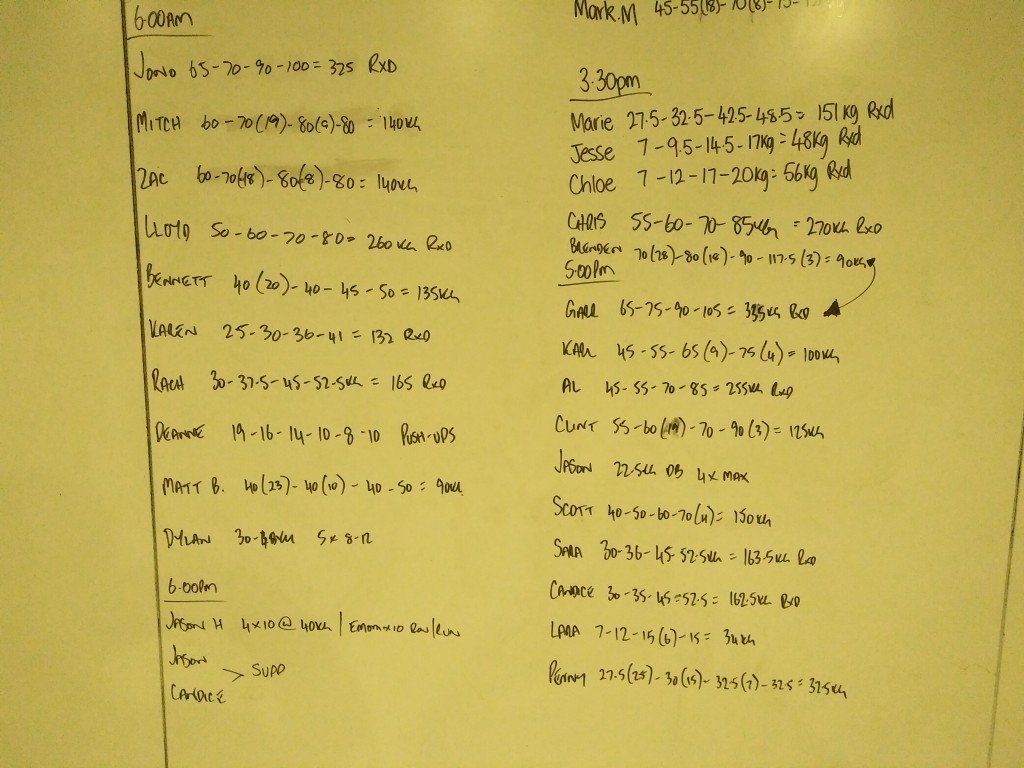 6:00AM
JONO 65-70-90-100 = 325 RXD
MITCH 60-70(19)-80(9)-80 = 140KG
ZAC 60-70(18)-80(8)-80 = 140KG
LLOYD 50-60-70-80 = 260KG RXD
BENNETT 40(20)-40-45-50 = 135KG
KAREN 25-30-36-41 = 132 RXD
RACH 30-37.5-45-52.5KG = 165 RXD
DEANNE 19-16-14-10-8-10 PUSH-UPS
MATT B. 40(23)-40(10)-40-50 = 90KG.
DYLAN 5x8-12
6.00PM
JASON H 4x10@40KG | EMOMx10 ROW/RUN
JASON
> SUPP
CANDICE
Mark.M 45-55(18)-70(8)-75-
3.30pm
Marie 27.5-32.5-42.5-48.5 = 151kg Rxd
Jesse 7-9.5-14.5-17kg = 48kg Rxd
Chloe 7-12-17-20kg = 56kg Rxd
CHRIS 55-60-70-85KG = 270KG RXD
BRENDEN 70(28)-80(18)-90-117.5(3) = 90KG
5:00PM
65-75-90-105 = 335KG RXD
KARL 45-55-65(9)-75(4) = 100KG
AL 45-55-70-85 = 255KG RXD
CLINT 55-60(19)-70-90(3) = 125KG
JASON 22.5KG DB 4x MAX
SCOTT 40-50-60-70(4) = 150KG
SARA 30-36-45-52.5KG = 163.5KG RXD
CANDICE 30-35-45=52.5 = 162.5KG RXD
LARA 7-12-15(6)-15 = 34KG
PENNY 27.5(25)-30(15)-32.5(7)-32.5 = 32.5KG